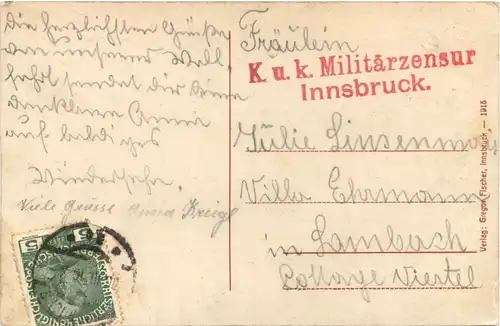 Die herzlichsten Grüße
von unserer Wall-
fahrt sendet dir deine
dankbare Anna
auf baldiges
Wiedersehn.
Viele Grüsse Anna Kreigl
Fräulein
K. u. k. Militärzensur
Innsbruck.
Julie
Villa Ehrmann
in Lambach
Cottage Viertel
Verlag: Gregor Fischer, Innsbruck. — 1915
5 5